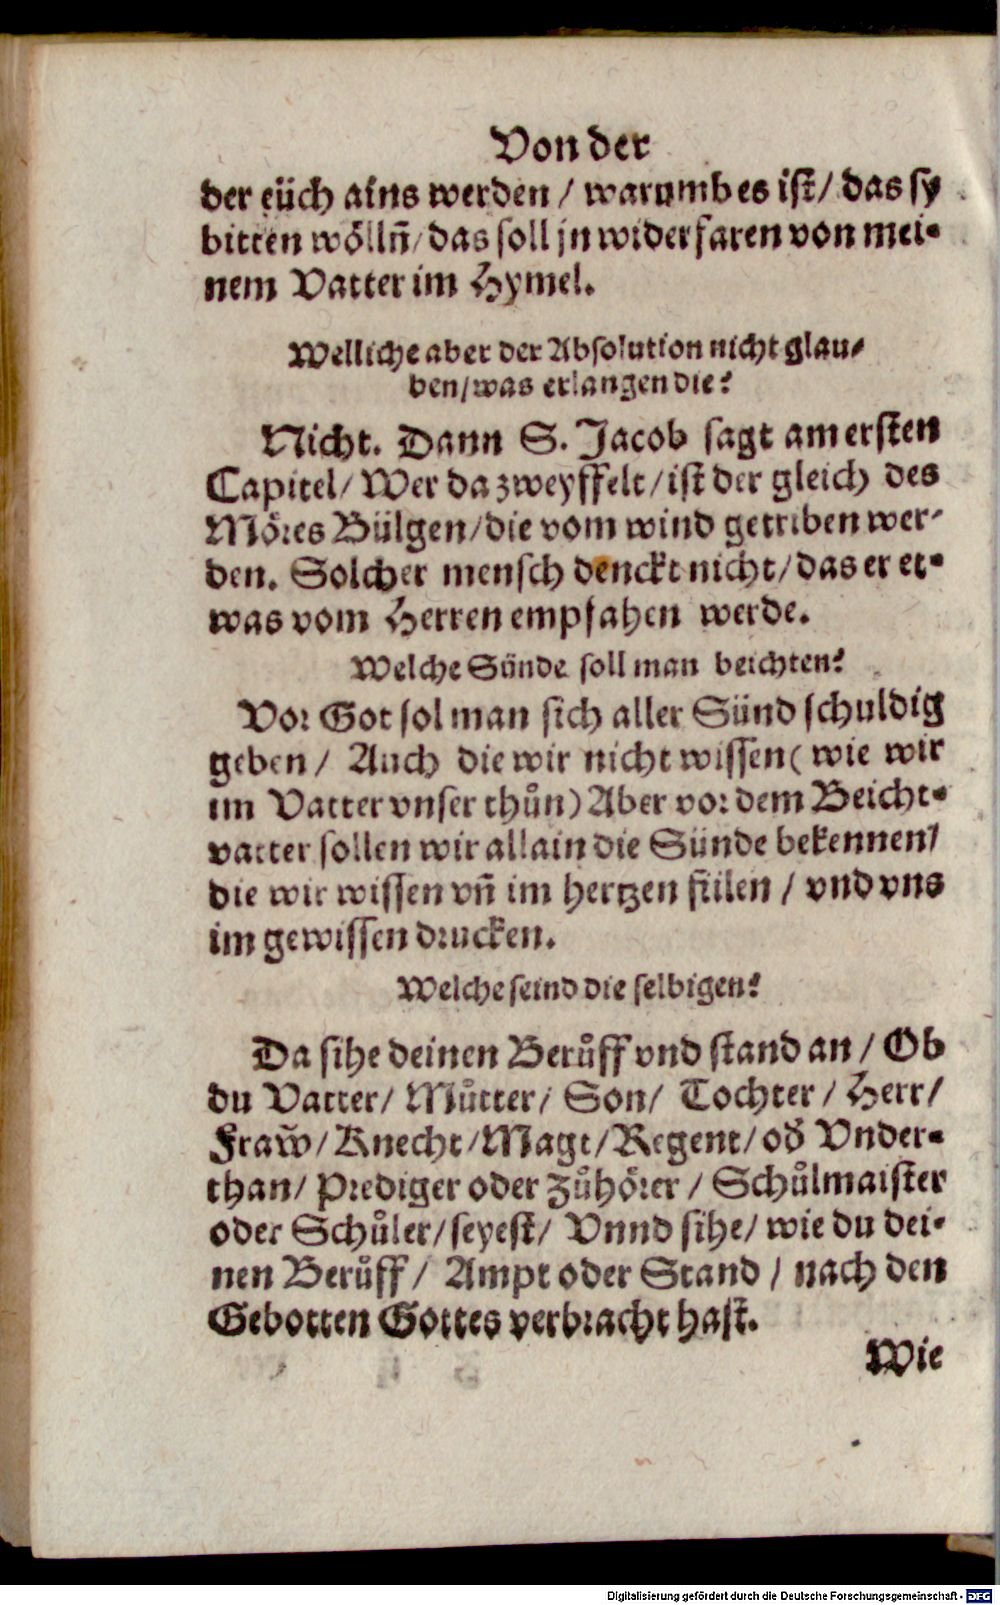 Von der
der eüch ains werden / warumb es ist / das sy
bitten wölln̄ / das soll jn widerfaren von mei-
nem Vatter im Hymel.
Welliche aber der Absolution nicht glau-
ben / was erlangen die?
Nicht. Dann S. Jacob sagt am ersten
Capitel / Wer da zweyffelt / ist der gleich des
Möres Bülgen / die vom wind getriben wer-
den. Solcher mensch denckt nicht / das er et-
was vom Herren empfahen werde.
Welche Sünde soll man beichten?
Vor Got sol man sich aller Sünd schuldig
geben / Auch die wir nicht wissen ( wie wir
im Vatter vnser thůn ) Aber vor dem Beicht-
vatter sollen wir allain die Sünde bekennen /
die wir wissen vn̄ im hertzen fülen / vnd vns
im gewissen drucken.
Welche seind die selbigen?
Da sihe deinen Berůff vnd stand an / Ob
du Vatter / Můtter / Son / Tochter / Herr /
Fraw̃ / Knecht / Magt / Regent / od̄ Vnder-
than / Prediger oder Zůhörer / Schůlmaister
oder Schůler / seyest / Vnnd sihe / wie du dei-
nen Berůff / Ampt oder Stand / nach den
Gebotten Gottes verbracht hast.
Wie
Digitalisierung gefördert durch die Deutsche Forschungsgemeinschaft - DFG